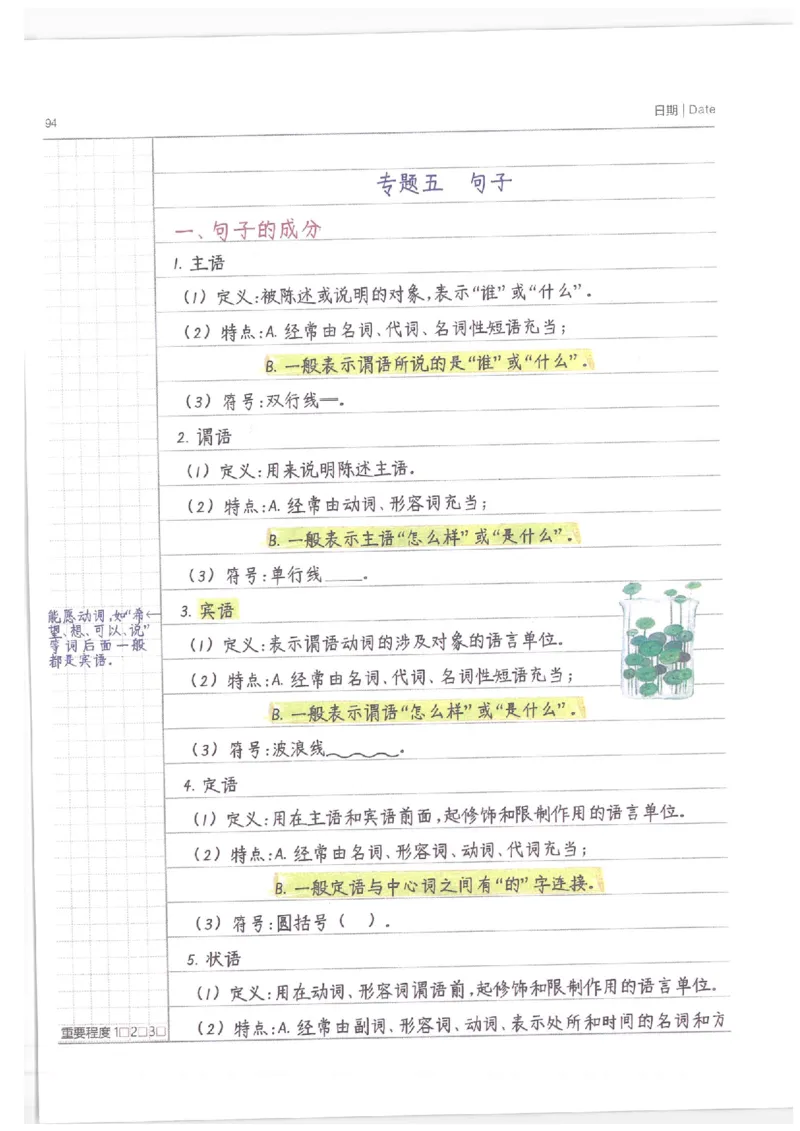 94
日期 | Date
专题五 句子
一、句子的成分
1. 主语
(1) 定义:被陈述或说明的对象,表示“谁”或“什么”.
(2) 特点:A. 经常由名词、代词、名词性短语充当;
B. 一般表示谓语所说的是“谁”或“什么”.
(3) 符号:双行线═.
2. 谓语
(1) 定义:用来说明陈述主语.
(2) 特点:A. 经常由动词、形容词充当;
B. 一般表示主语“怎么样”或“是什么”.
(3) 符号:单行线____.
能愿动词,如“希←
望、想、可以、说”
等词后面一般
都是宾语.
3. 宾语
(1) 定义:表示谓语动词的涉及对象的语言单位.
(2) 特点:A. 经常由名词、代词、名词性短语充当;
B. 一般表示谓语“怎么样”或“是什么”.
(3) 符号:波浪线﹏﹏.
4. 定语
(1) 定义:用在主语和宾语前面,起修饰和限制作用的语言单位.
(2) 特点:A. 经常由名词、形容词、动词、代词充当;
B. 一般定语与中心词之间有“的”字连接.
(3) 符号:圆括号( ).
5. 状语
(1) 定义:用在动词、形容词谓语前,起修饰和限制作用的语言单位.
(2) 特点:A. 经常由副词、形容词、动词、表示处所和时间的名词和方
重要程度 1□2□3□